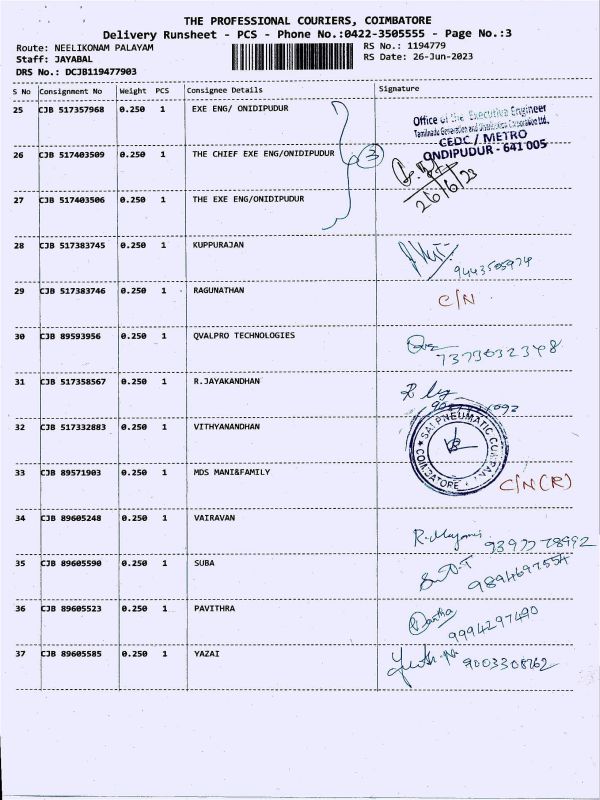 THE PROFESSIONAL COURIERS, COIMBATORE
Delivery Runsheet - PCS - Phone No.:0422-3505555 - Page No.:3
Route: NEELIKONAM PALAYAM
RS No.: 1194779
Staff: JAYABAL
RS Date: 26-Jun-2023
DRS No.: DCJB119477903
S No Consignment No Weight PCS Consignee Details Signature
25 CJB 517357968 0.250 1 EXE ENG/ ONIDIPUDUR
Office of the Executive Engineer
Tamilnadu Generation and Distribution Corporation Ltd.,
CEDC / METRO
ONDIPUDUR - 641 005
26 CJB 517403509 0.250 1 THE CHIEF EXE ENG/ONIDIPUDUR 3
26/6/23
27 CJB 517403506 0.250 1 THE EXE ENG/ONIDIPUDUR
28 CJB 517383745 0.250 1 KUPPURAJAN
9443505974
29 CJB 517383746 0.250 1 RAGUNATHAN C/N
30 CJB 89593956 0.250 1 QVALPRO TECHNOLOGIES
7373032348
31 CJB 517358567 0.250 1 R.JAYAKANDHAN
32 CJB 517332883 0.250 1 VITHYANANDHAN
SAI PNEUMATIC COMPANY
COIMBATORE
33 CJB 89571903 0.250 1 MDS MANI&FAMILY C/N(R)
34 CJB 89605248 0.250 1 VAIRAVAN
35 CJB 89605590 0.250 1 SUBA
9894697554
36 CJB 89605523 0.250 1 PAVITHRA
9994297490
37 CJB 89605585 0.250 1 YAZAI
9003308762